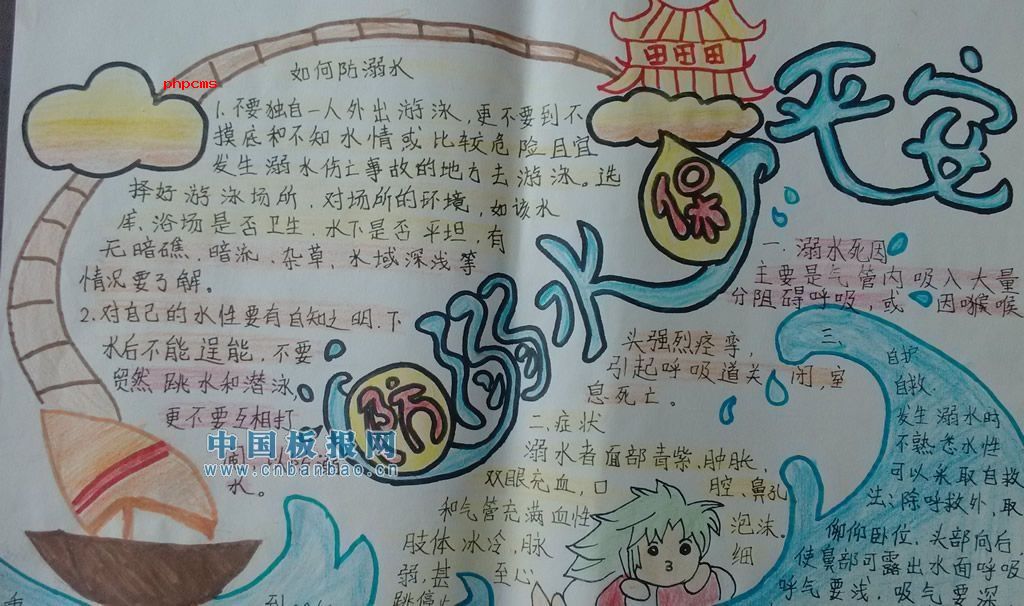 phpcms
如何防溺水
1.不要独自一人外出游泳,更不要到不
摸底和不知水情或比较危险且宜
发生溺水伤亡事故的地方去游泳。选
择好游泳场所,对场所的环境,如该水
库、浴场是否卫生,水下是否平坦,有
无暗礁、暗流、杂草、水域深浅等
情况要了解。
2.对自己的水性要有自知之明,下
水后不能逞能,不要
贸然跳水和潜泳,
更不要互相打
水。
中国板报网
www.cnbanbao.cn
防溺水
保
平安
一、溺水死因
主要是气管内吸入大量
分阻碍呼吸,或因喉喉
头强烈痉挛,
引起呼吸道关闭,窒
息死亡。
二、症状
溺水者面部青紫、肿胀、
双眼充血,口腔、鼻孔
和气管充满血性泡沫。
肢体冰冷,脉细
弱,甚至心
跳停止
三、
自护
自救
发生溺水时
不熟悉水性
可以采取自救
法:除呼救外,取
仰仰卧位,头部向后,
使鼻部可露出水面呼吸
呼气要浅,吸气要深